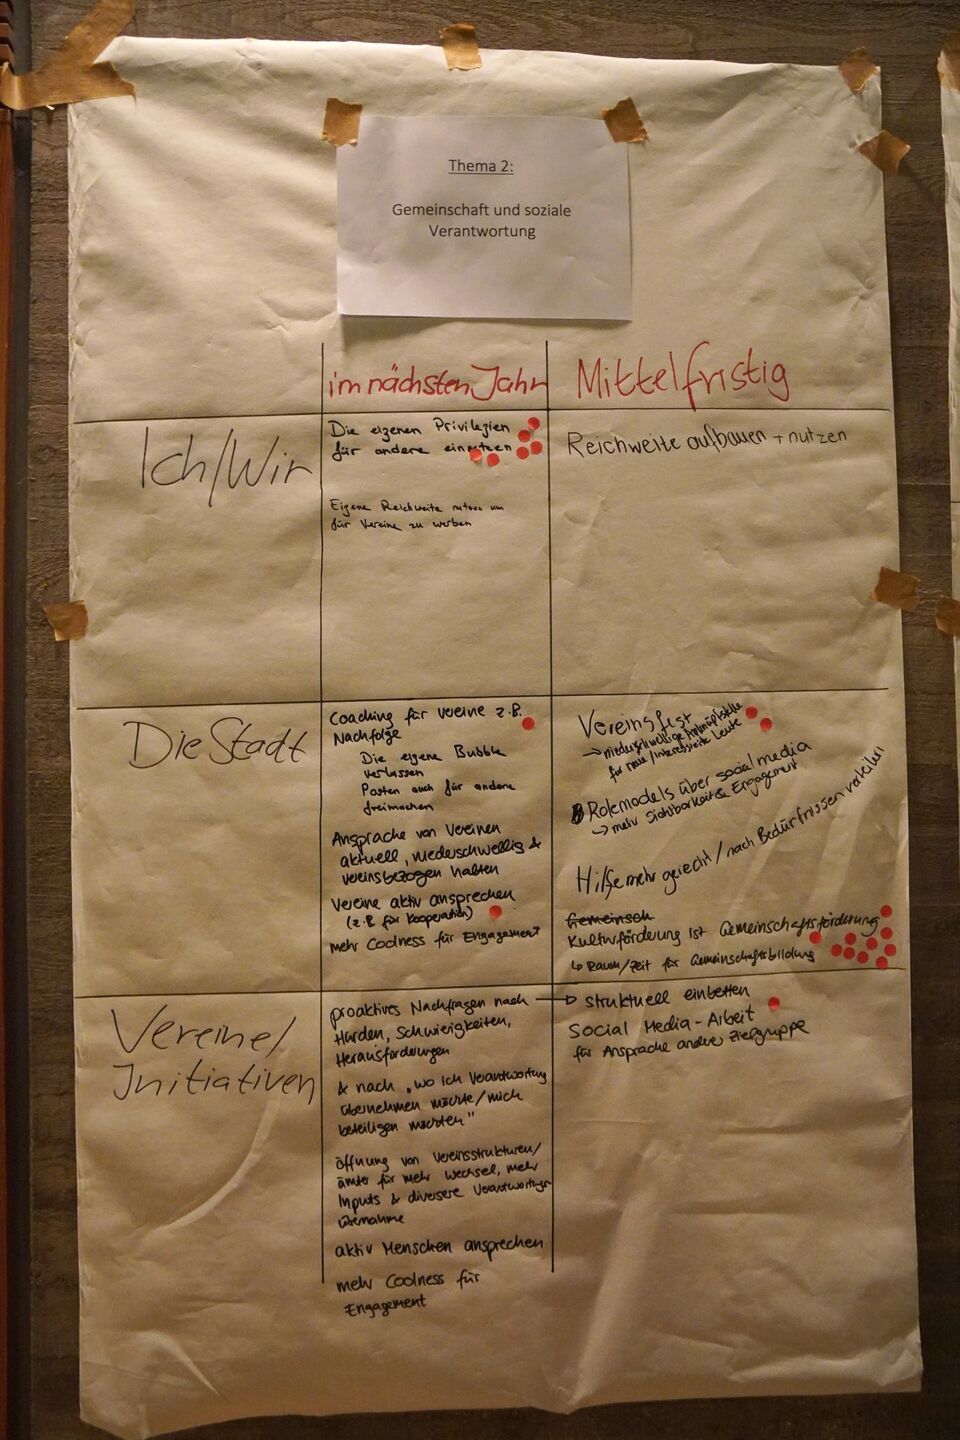 Thema 2:
Gemeinschaft und soziale
Verantwortung
im nächsten Jahr
Mittelfristig
Ich/Wir
Die eigenen Privilegien
für andere einsetzen
Eigene Reichweite nutzen um
für Vereine zu werben
Reichweite aufbauen + nutzen
Die Stadt
Coaching für Vereine z.B.
Nachfolge
Die eigene Bubble
verlassen
Posten auch für andere
freimachen
Ansprache von Vereinen
aktuell, niederschwellig &
vereinsbezogen halten
Vereine aktiv ansprechen
(z.B. für Kooperation)
mehr Coolness für Engagement
Vereinsfest
→ niederschwellige Anknüpfstelle
für neue/interessierte Leute
Rolemodels über social media
→ mehr Sichtbarkeit & Engagement
Hilfe mehr gerecht / nach Bedürfnissen verteilen
Gemeinsch
Kulturförderung ist Gemeinschaftsförderung
↳ Raum/Zeit für Gemeinschaftsbildung
Vereine/
Initiativen
proaktives Nachfragen nach
Hürden, Schwierigkeiten,
Herausforderungen
& nach „wo ich Verantwortung
übernehmen möchte/mich
beteiligen möchten"
Öffnung von Vereinsstrukturen/
ämter für mehr Wechsel, mehr
Inputs & diversere Verantwortungs-
übernahme
aktiv Menschen ansprechen
mehr Coolness für
Engagement
→ strukturell einbetten
Social Media-Arbeit
für Ansprache andrer Zielgruppe